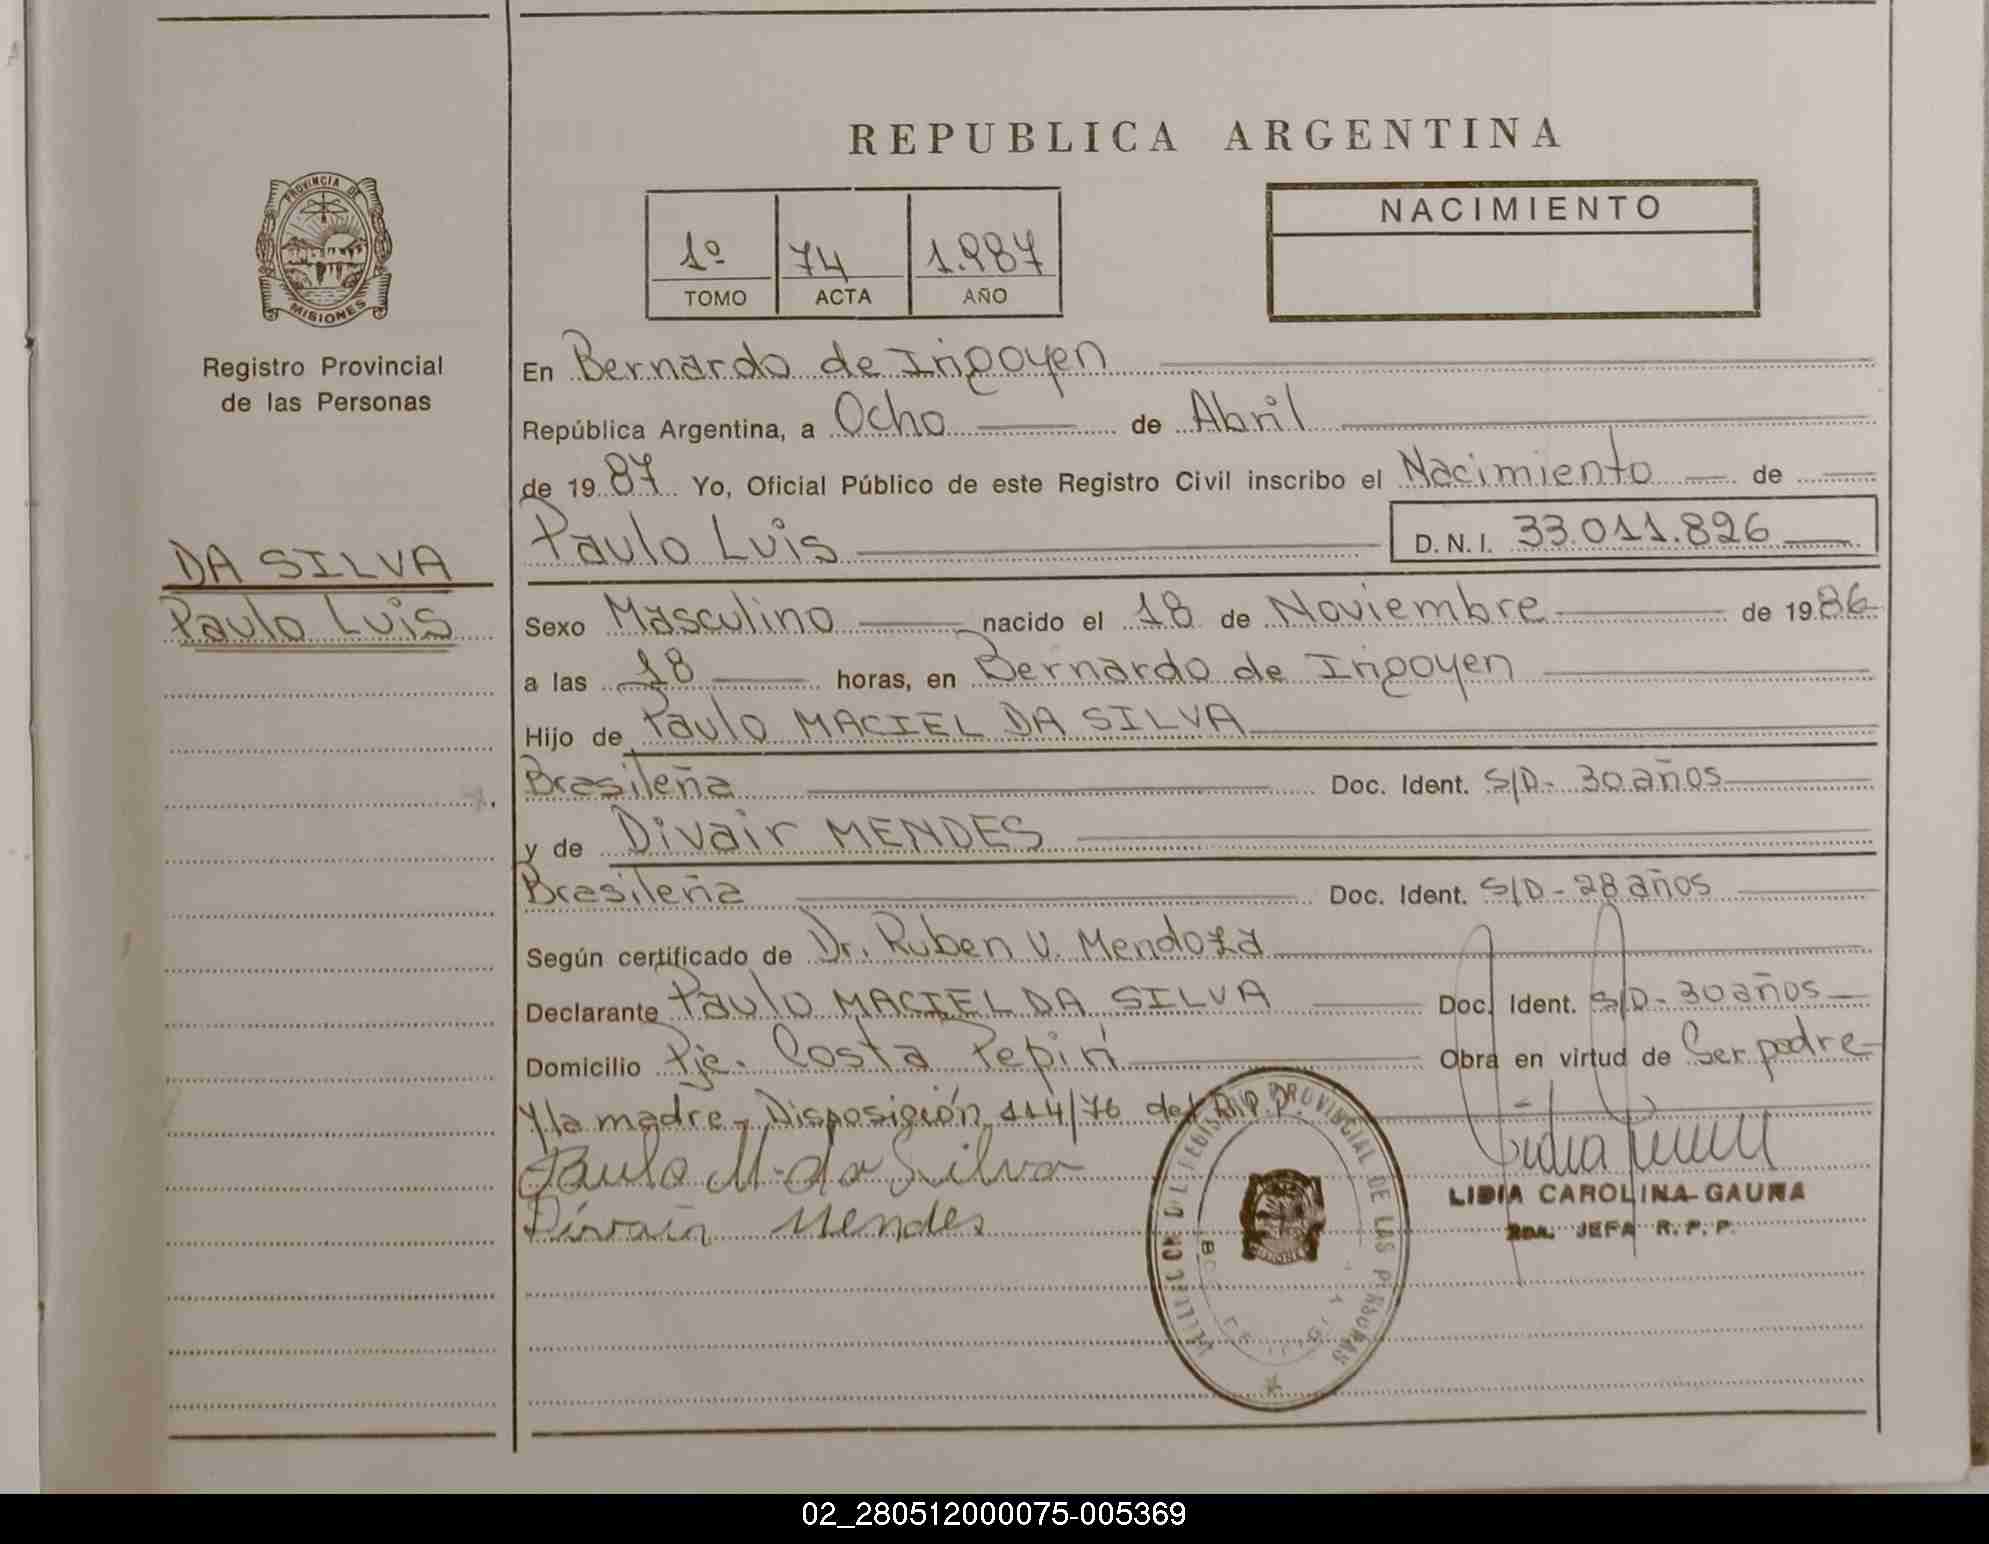 REPUBLICA ARGENTINA
PROVINCIA DE
MISIONES
Registro Provincial
de las Personas
DA SILVA
Paulo Luis
1º 74 1.987
TOMO ACTA AÑO
NACIMIENTO
En Bernardo de Irigoyen
República Argentina, a Ocho de Abril
de 1987 Yo, Oficial Público de este Registro Civil inscribo el Nacimiento de
Paulo Luis D.N.I. 33.011.826
Sexo Masculino nacido el 18 de Noviembre de 1986
a las 18 horas, en Bernardo de Irigoyen
Hijo de Paulo MACIEL DA SILVA
Brasileña Doc. Ident. S/D- 30 años
y de Divair MENDES
Brasileña Doc. Ident. S/D- 28 años
Según certificado de Dr. Ruben V. Mendoza
Declarante Paulo MACIEL DA SILVA Doc. Ident. S/D- 30 años
Domicilio Pje. Costa Pepirí Obra en virtud de Ser padre
y la madre- Disposición 114/76 del R.P.P.
Paulo M. da Silva
Divair Mendes
PROVINCIAL DE LAS PERSONAS
LIDIA CAROLINA GAUNA
2da. JEFA R.P.P.
02_280512000075-005369